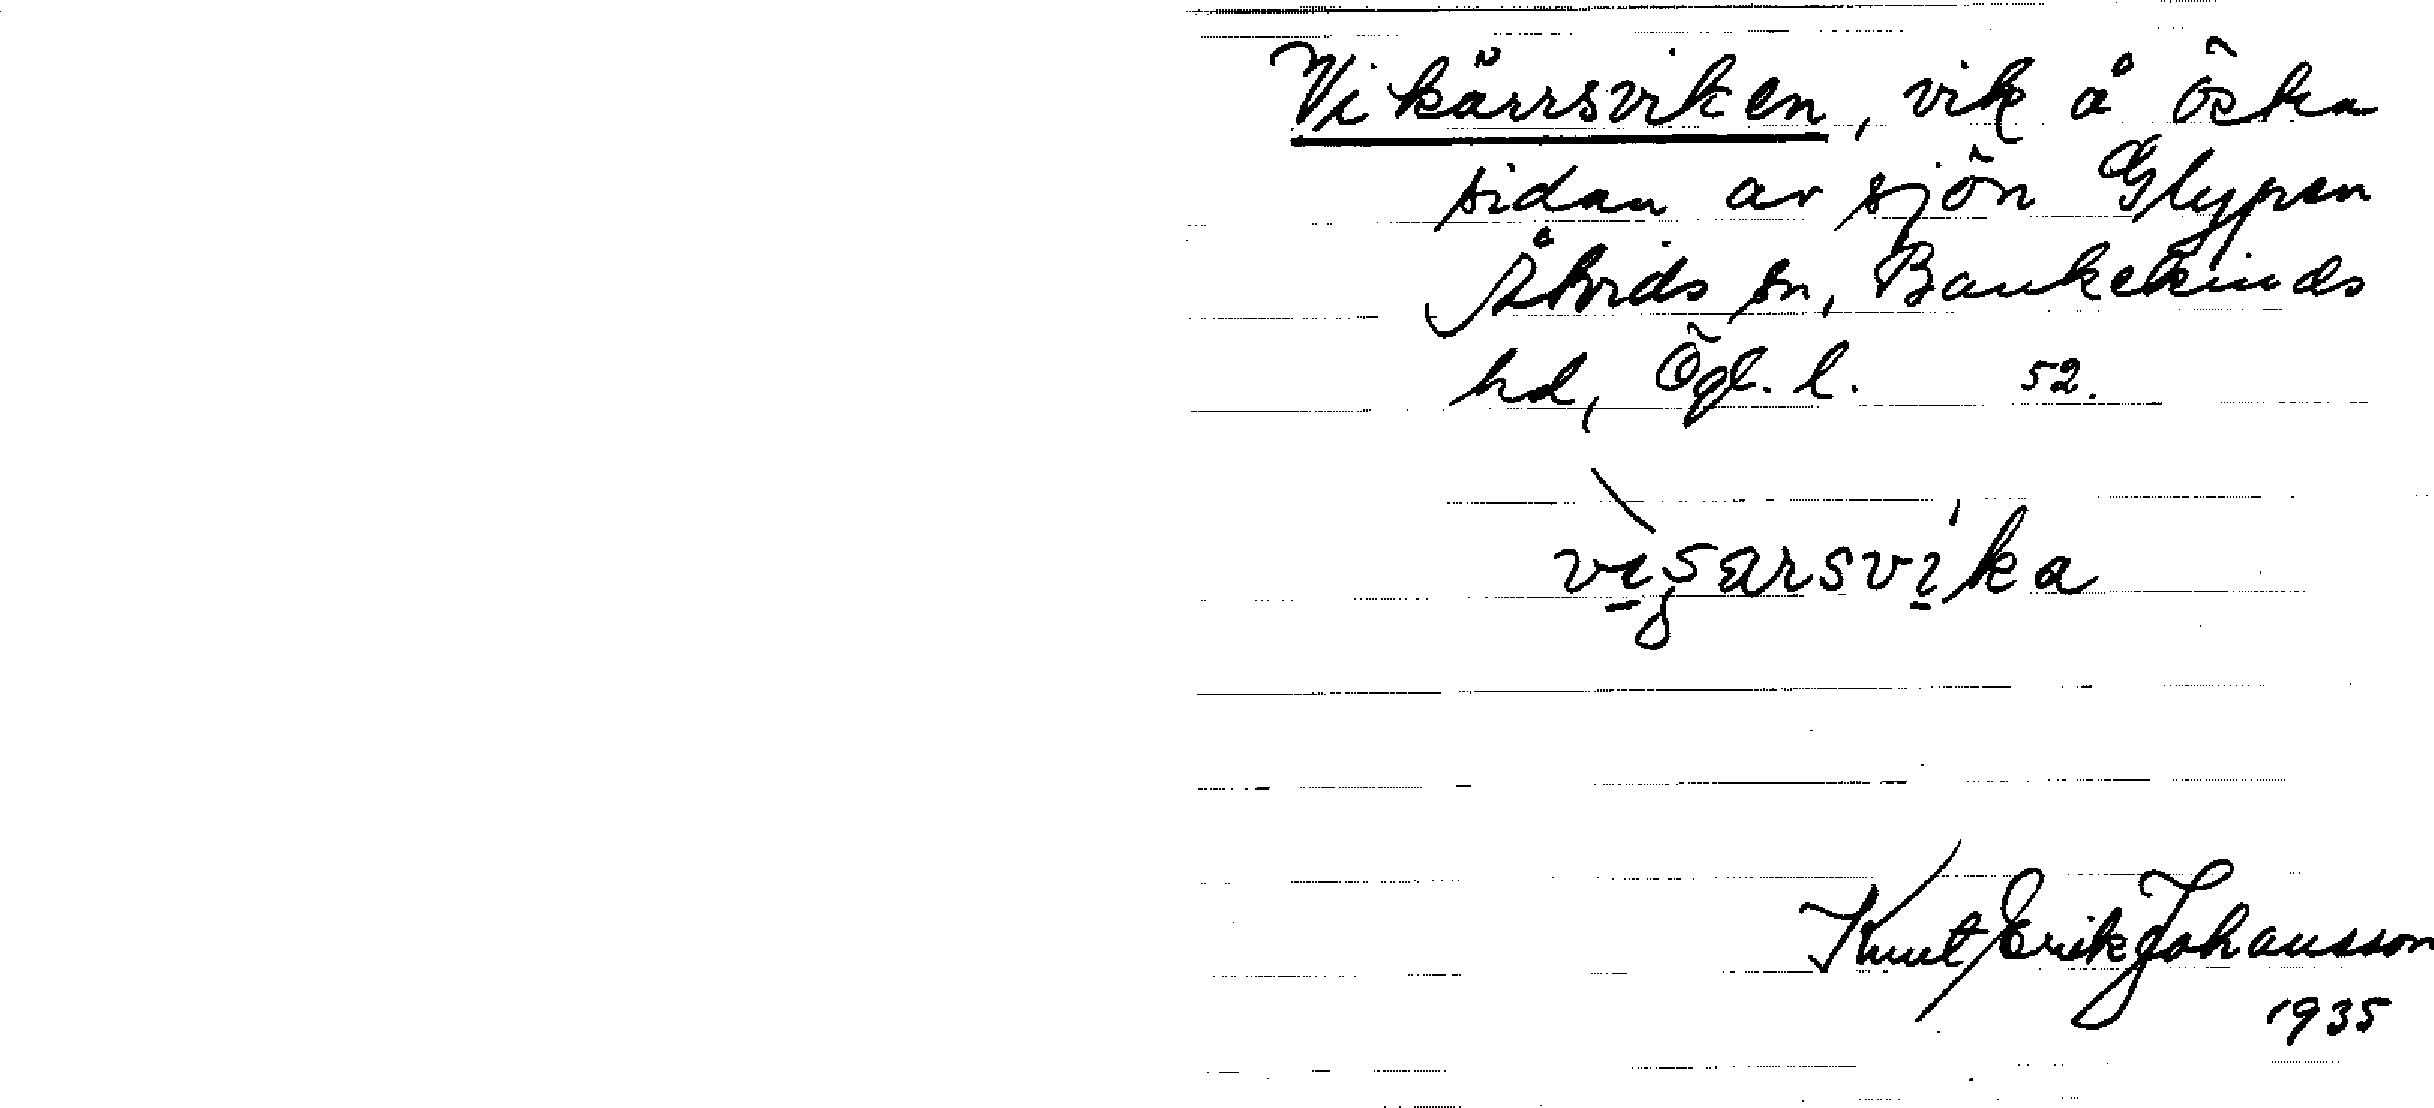 Vikärrsviken, vik å östra
sidan av sjön Glypen
Åtvids sn, Bankekinds
hd, Ögl. l. 52.
Knut Erik Johansson
1935